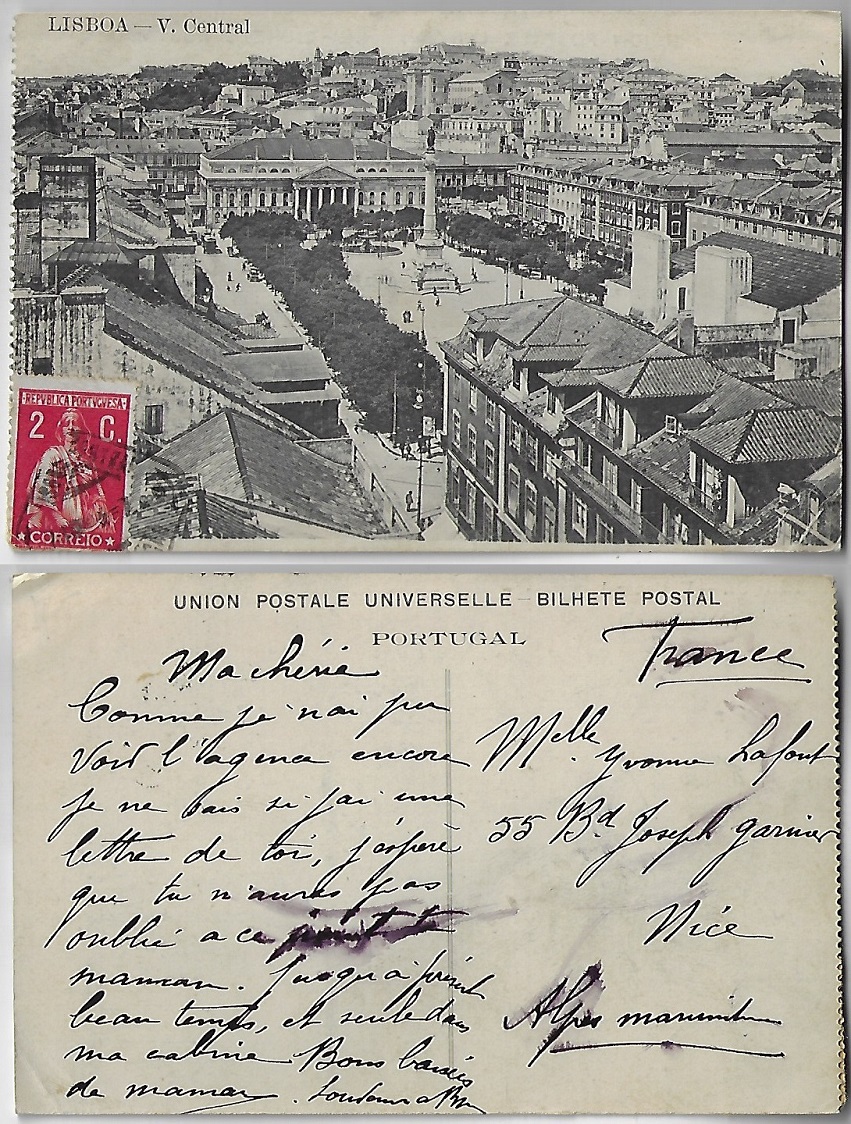 LISBOA — V. Central
REPVBLICA PORTVGVESA
2 C.
CORREIO
UNION POSTALE UNIVERSELLE – BILHETE POSTAL
PORTUGAL
France
Ma chérie
Comme je n'ai pu
voir l'agence encore
je ne sais si j'ai une
lettre de toi, j'espère
que tu n'auras pas
oublié a ce
maman. Jusqu'à présent
beau temps, et seule dans
ma cabine Bons baisers
de maman.
Melle Yvonne Lafont
55 Bd Joseph garnier
Nice
Alpes maritimes